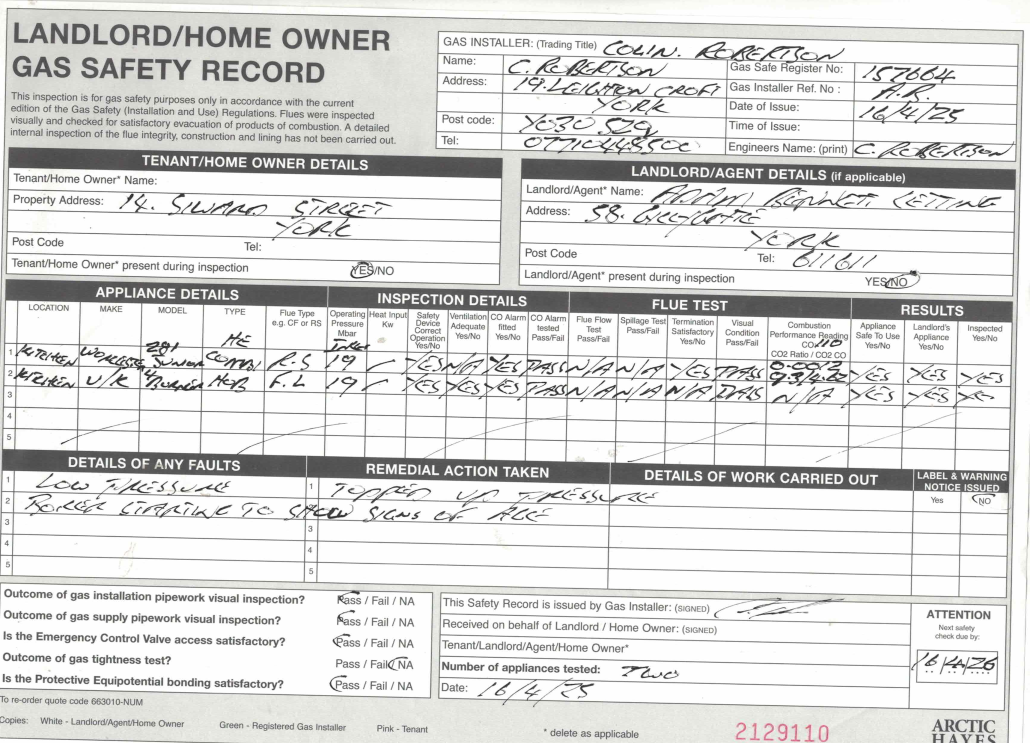 LANDLORD/HOME OWNER
GAS SAFETY RECORD
This inspection is for gas safety purposes only in accordance with the current
edition of the Gas Safety (Installation and Use) Regulations. Flues were inspected
visually and checked for satisfactory evacuation of products of combustion. A detailed
internal inspection of the flue integrity, construction and lining has not been carried out.
GAS INSTALLER: (Trading Title) COLIN. ROBERTSON
Name: C. ROBERTSON Gas Safe Register No: 157664
Address: 19. LEIGHTON CROFT Gas Installer Ref. No : A.R.
YORK Date of Issue: 16/4/25
Post code: YO30 Time of Issue:
Tel: 07710448500 Engineers Name: (print) C. ROBERTSON
TENANT/HOME OWNER DETAILS
Tenant/Home Owner* Name:
Property Address: 14. SIWARD STREET
YORK
Post Code Tel:
Tenant/Home Owner* present during inspection YES/NO
LANDLORD/AGENT DETAILS (if applicable)
Landlord/Agent* Name: ADAM BENNETT LETTING
Address: 58. GILLYGATE
YORK
Post Code Tel: 611611
Landlord/Agent* present during inspection YES/NO
APPLIANCE DETAILS INSPECTION DETAILS FLUE TEST RESULTS
LOCATION MAKE MODEL TYPE Flue Type e.g. CF or RS Operating Pressure Mbar Heat Input Kw Safety Device Correct Operation Yes/No Ventilation Adequate Yes/No CO Alarm fitted Yes/No CO Alarm tested Pass/Fail Flue Flow Test Pass/Fail Spillage Test Pass/Fail Termination Satisfactory Yes/No Visual Condition Pass/Fail Combustion Performance Reading CO 110 CO2 Ratio / CO2 CO Appliance Safe To Use Yes/No Landlord's Appliance Yes/No Inspected Yes/No
1 KITCHEN WORCESTER 28i JUNIOR HE COMBI R.S Inlet 19 YES N/A YES PASS N/A N/A YES PASS YES YES YES
2 KITCHEN U/K 4 BURNER HOB F.L 19 YES YES YES PASS N/A N/A N/A PASS N/A YES YES YES
3
4
5
DETAILS OF ANY FAULTS REMEDIAL ACTION TAKEN DETAILS OF WORK CARRIED OUT LABEL & WARNING NOTICE ISSUED
1 LOW PRESSURE 1 TOPPED UP PRESSURE Yes NO
2 BOILER STARTING TO SHOW SIGNS OF AGE
3 3
4 4
5 5
Outcome of gas installation pipework visual inspection? Pass / Fail / NA
Outcome of gas supply pipework visual inspection? Pass / Fail / NA
Is the Emergency Control Valve access satisfactory? Pass / Fail / NA
Outcome of gas tightness test? Pass / Fail / NA
Is the Protective Equipotential bonding satisfactory? Pass / Fail / NA
This Safety Record is issued by Gas Installer: (SIGNED)
Received on behalf of Landlord / Home Owner: (SIGNED)
Tenant/Landlord/Agent/Home Owner*
Number of appliances tested: TWO
Date: 16/4/25
ATTENTION
Next safety
check due by:
16/4/26
To re-order quote code 663010-NUM
Copies: White - Landlord/Agent/Home Owner Green - Registered Gas Installer Pink - Tenant * delete as applicable
2129110
ARCTIC
HAYES